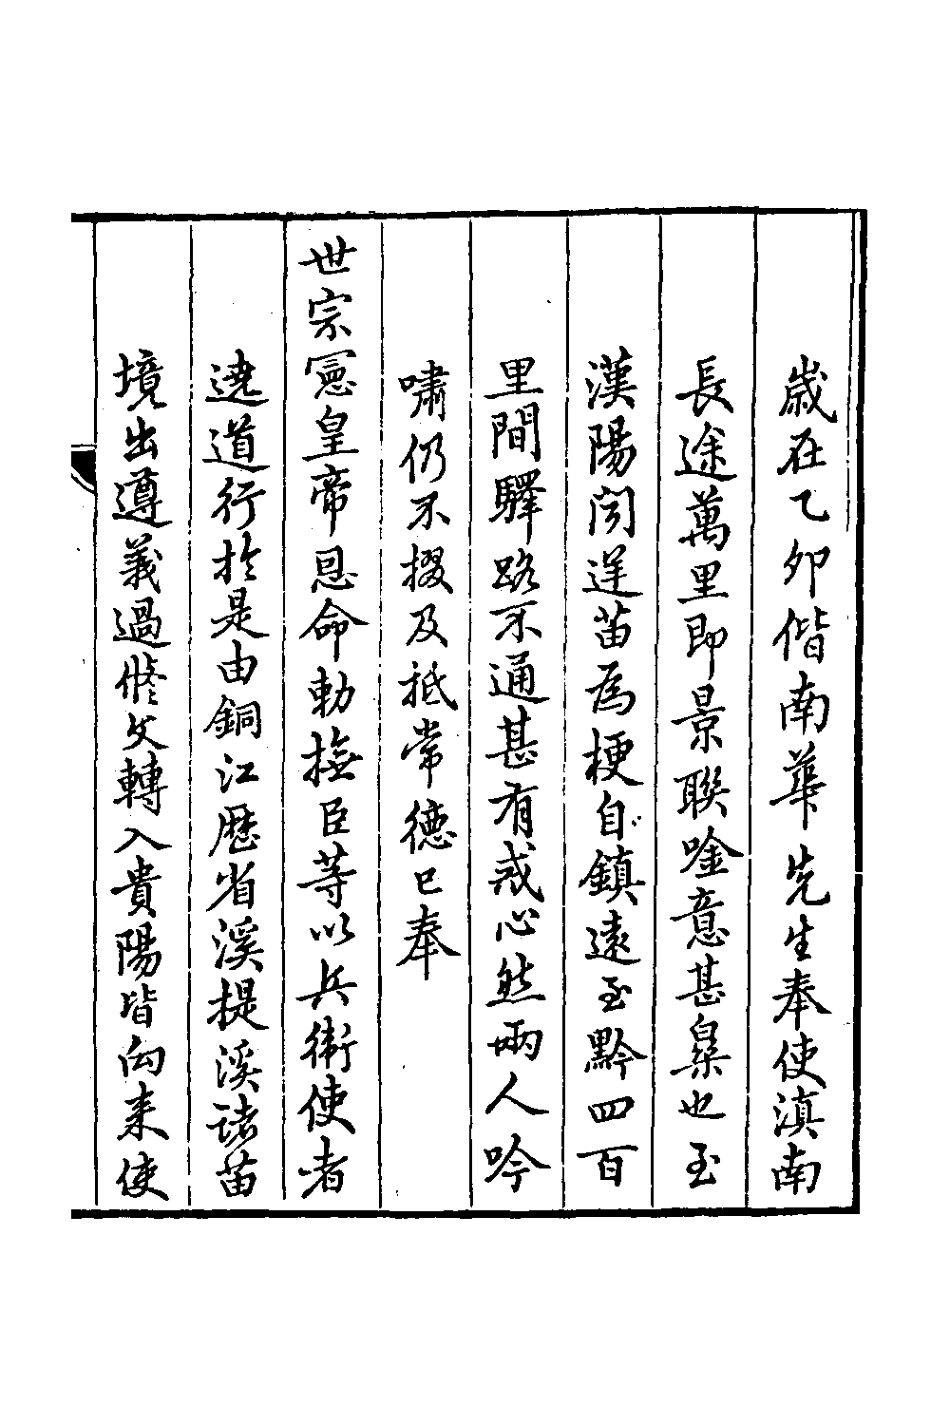 歲在乙卯偕南華先生奉使滇南
長途萬里即景聯唫意甚樂也至
漢陽聞逆苗為梗自鎮遠至黔四百
里間驛路不通甚有戒心然兩人吟
嘯仍不掇及抵常德已奉
世宗憲皇帝恩命勅撫臣等以兵衛使者
遶道行於是由銅江歷省溪提溪諸苗
境出遵義過修文轉入貴陽皆向来使